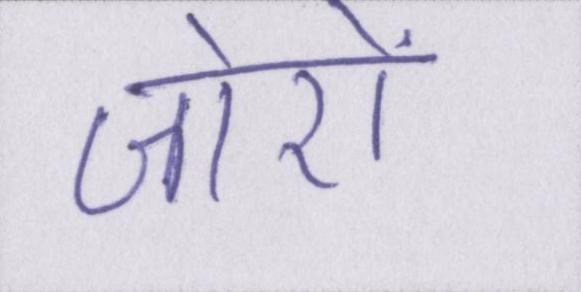 जोरों